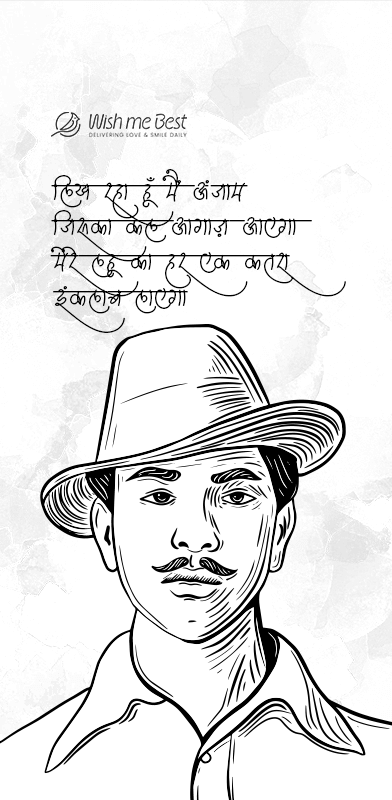 Wish me Best
DELIVERING LOVE & SMILE DAILY
लिख रहा हूँ मैं अंजाम
जिसका कल आगाज़ आएगा
मेरे लहू का हर एक कतरा
इंकलाब लाएगा